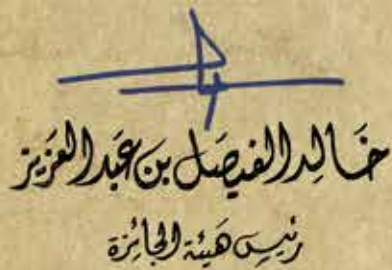 خَالِد الفَيصَل بن عَبد العَزيز
رئيس هَيئة الجَائِزة